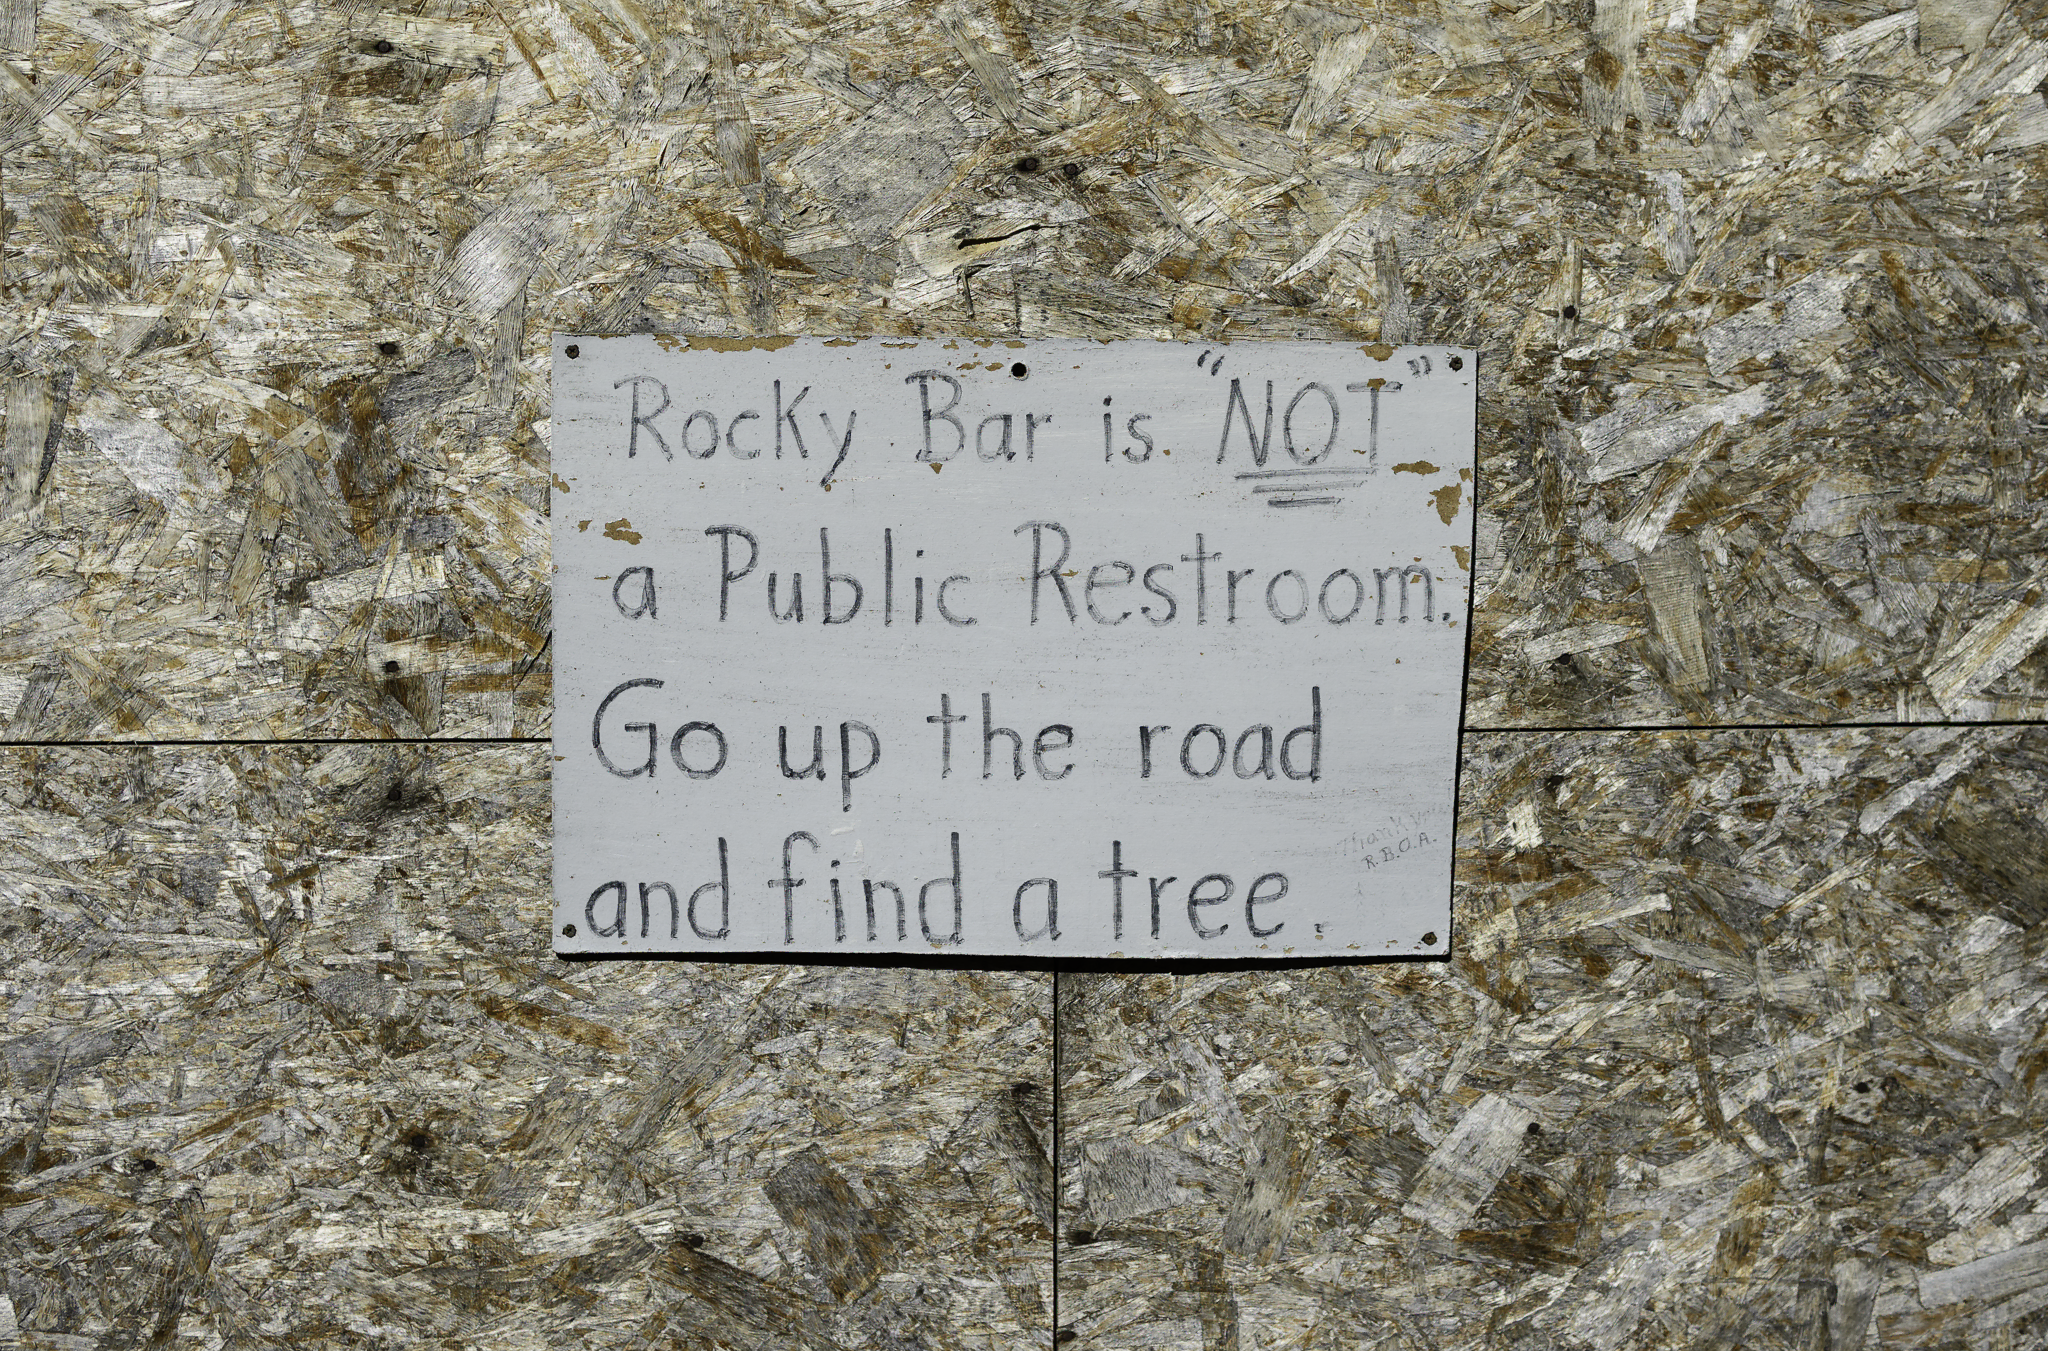 Rocky Bar is "NOT"
a Public Restroom.
Go up the road
and find a tree.
Thank you
R.B.O.A.